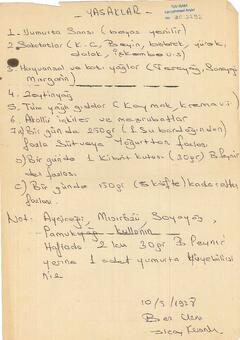 - YASAKLAR -
1- Yumurta Sarısı (beyaz yenilir)
2- Sakatatlar (K.C, Beyin, böbrek, yürek
dalak, işkembe v.s)
3- Hayvansal ve katı yağlar (Tereyağ, Sanayağ
Margarin)
4. Zeytinyağ
5. Tüm yağlı gıdalar (Kaymak, krema v.s
6. Alkollü içkiler ve meşrubatlar
7- a) Bir günde 250gr (1 Su bardağından)
fazla Süt veya Yoğurttan fazlası.
b) Bir günde 1 Kibrit kutusu (30gr) B. Peynir
den fazlası.
c) Bir günde 150gr (5 köfte) kadar etten
fazlası.
Not: Ayçiçeği, Mısırözü, Soyayağ,
Pamukyağı kullanın
Haftada 2 kez 30gr B. Peynir
yerine 1 adet yumurta yiyebilirsi
niz
10/5/1978